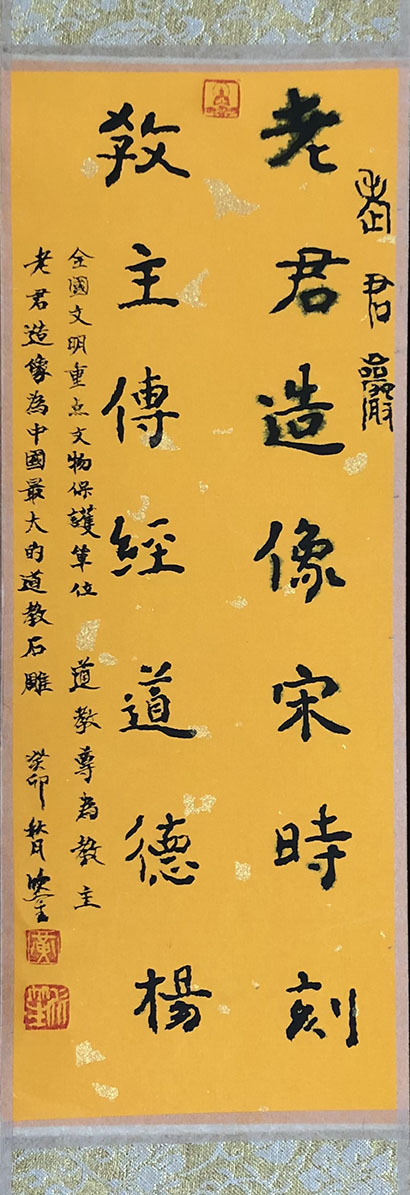 老君巖
老君造像宋時刻
教主傳經道德楊
全國文明重点文物保護單位 道教尊為教主
老君造像為中國最大的道教石雕 癸卯秋月
黃